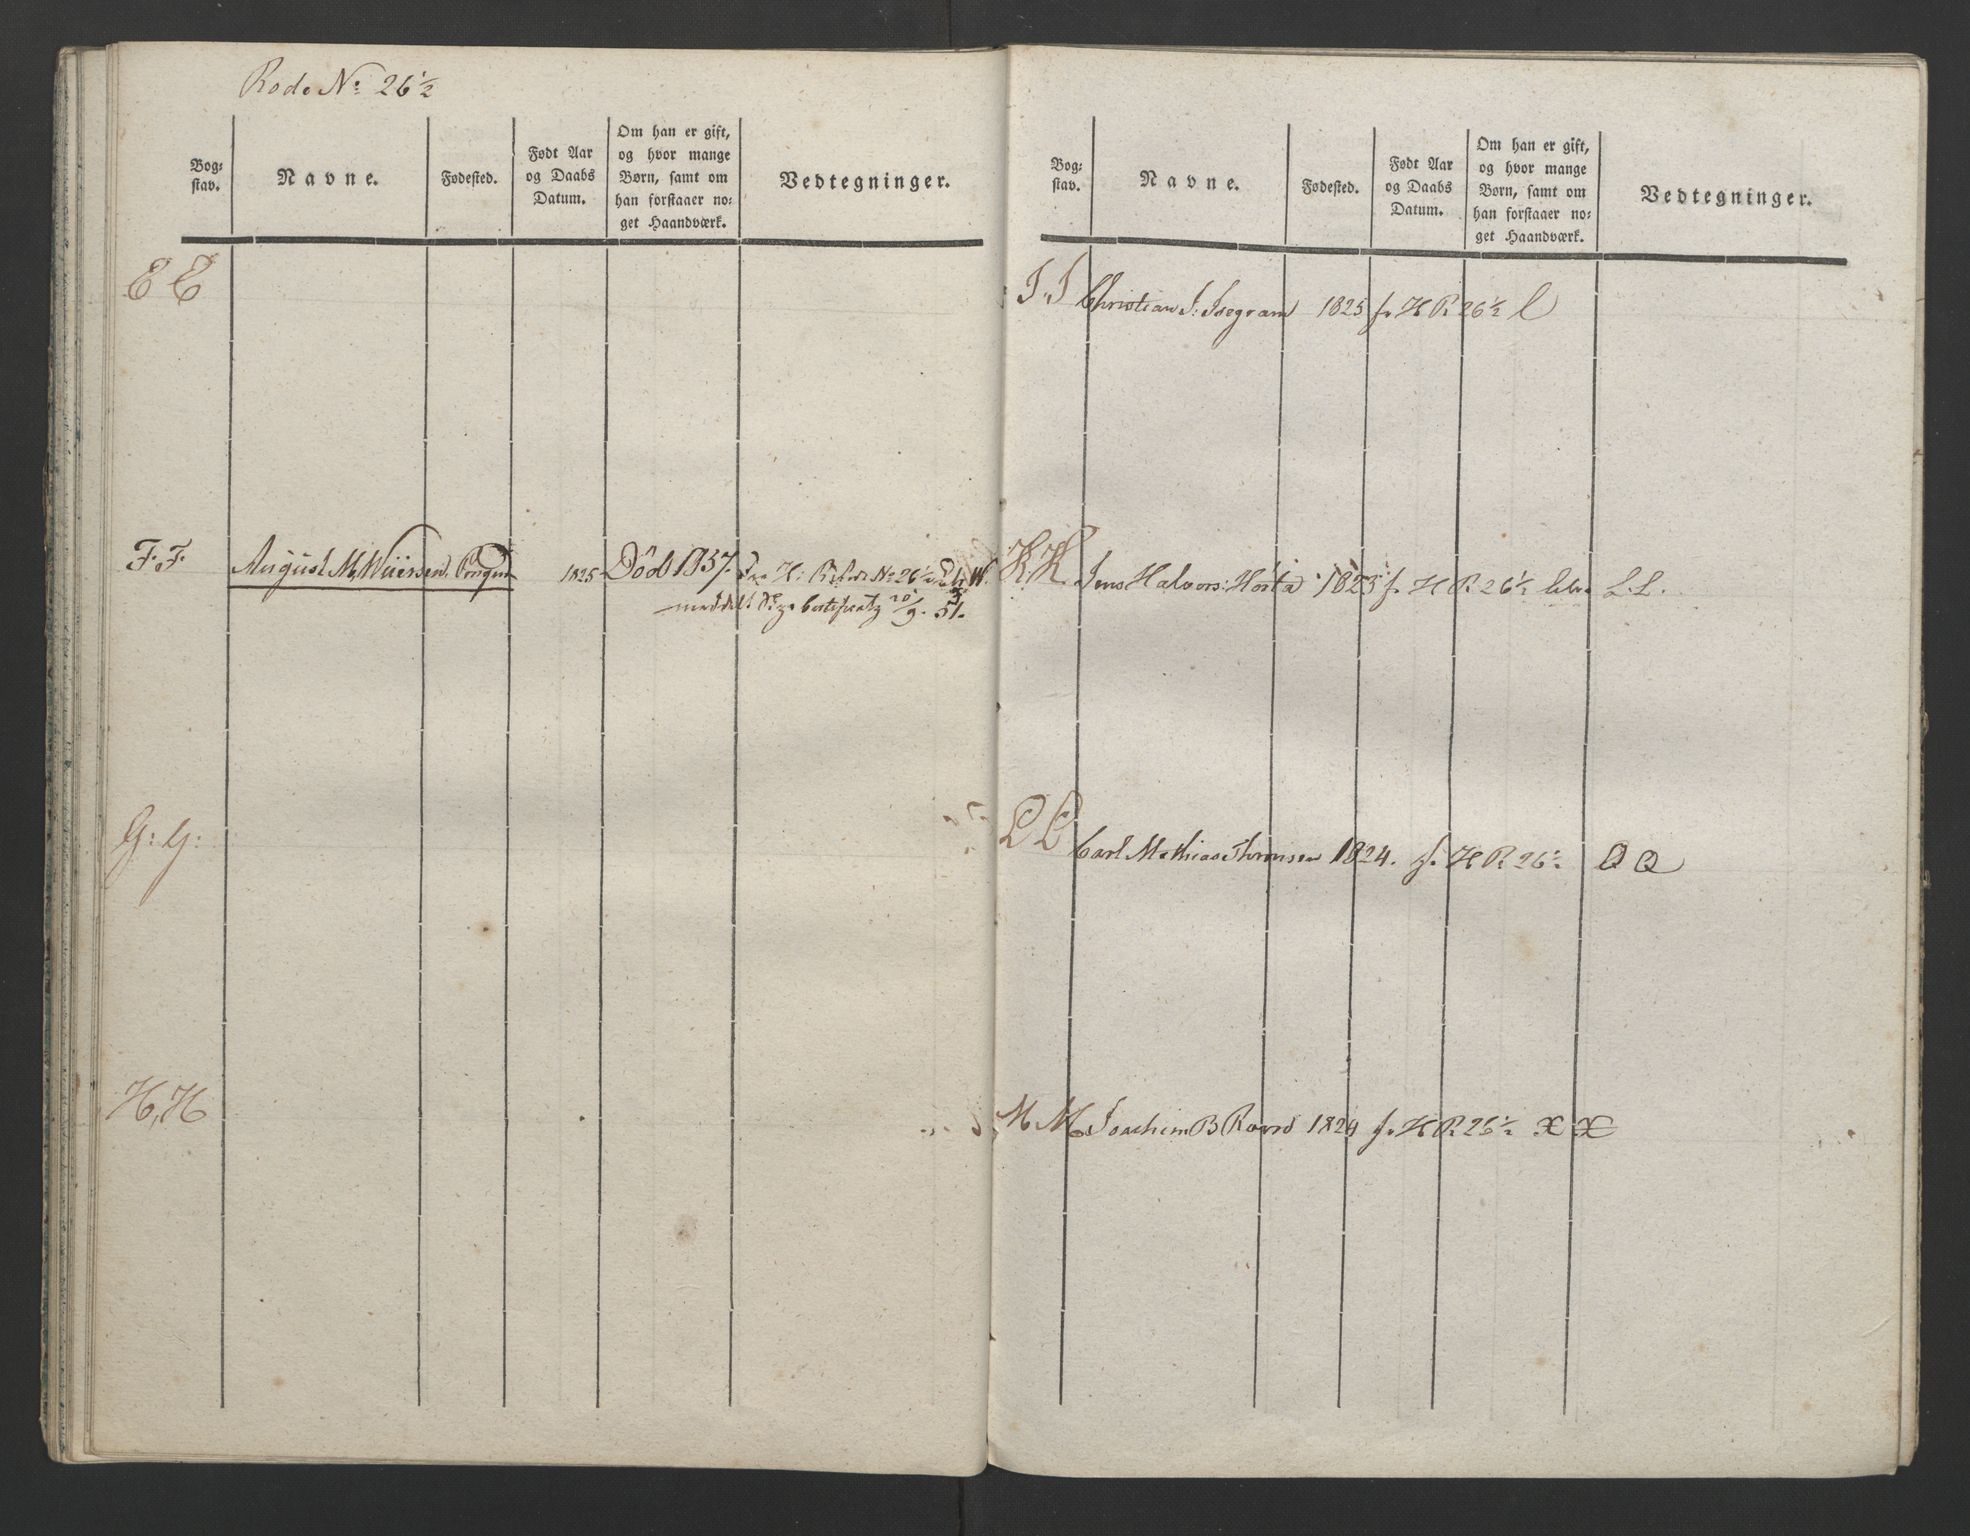 Rode No 26 1/2
Bog-
stav.
Navne.
Fødested.
Født Aar
og Daabs
Datum.
Om han er gift,
og hvor mange
Børn, samt om
han forstaaer no-
get Haandværk.
Vedtegninger.
E E
F. F. August M, Wüersen. 1825 Död 1857. H: No 26 1/2 W.
meddelt 51.
G: G:
H, H
Bog-
stav.
Navne.
Fødested.
Født Aar
og Daabs
Datum.
Om han er gift,
og hvor mange
Børn, samt om
han forstaaer no-
get Haandværk.
Vedtegninger.
I. I Christian J: Isegram 1825 f. H R 26 1/2 C
K K Jens Halvors: Horta 1825 f. H R 26 1/2 L L.
L L Carl Mathias Thronsen 1824. f. H R 26 1/2 Q Q
M M Joachim B 1824 f. H R 26 1/2 X X